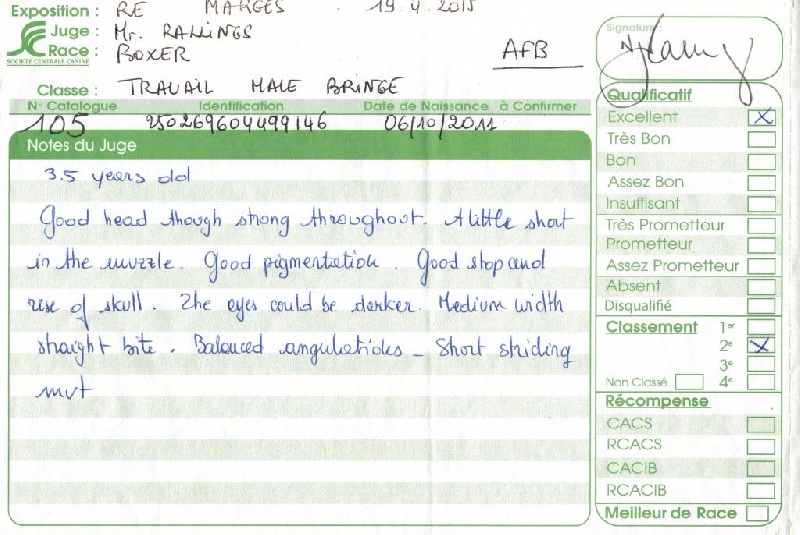 Exposition : RE MARGES 19.4.2015
Juge : Mr. RALLINGS
Race : BOXER
SOCIETE CENTRALE CANINE
AFB
Signature :
Classe : TRAVAIL MALE BRINGE
N° Catalogue Identification Date de Naissance à Confirmer
105 250269604499146 06/10/2011
Notes du Juge
3.5 years old
Good head though strong throughout. A little short
in the muzzle. Good pigmentation. Good stop and
rise of skull. The eyes could be darker. Medium width
straight bite. Balanced angulations - Short striding
mvt
Qualificatif
Excellent X
Très Bon
Bon
Assez Bon
Insuffisant
Très Prometteur
Prometteur
Assez Prometteur
Absent
Disqualifié
Classement 1er
2e X
3e
Non Classé 4e
Récompense
CACS
RCACS
CACIB
RCACIB
Meilleur de Race